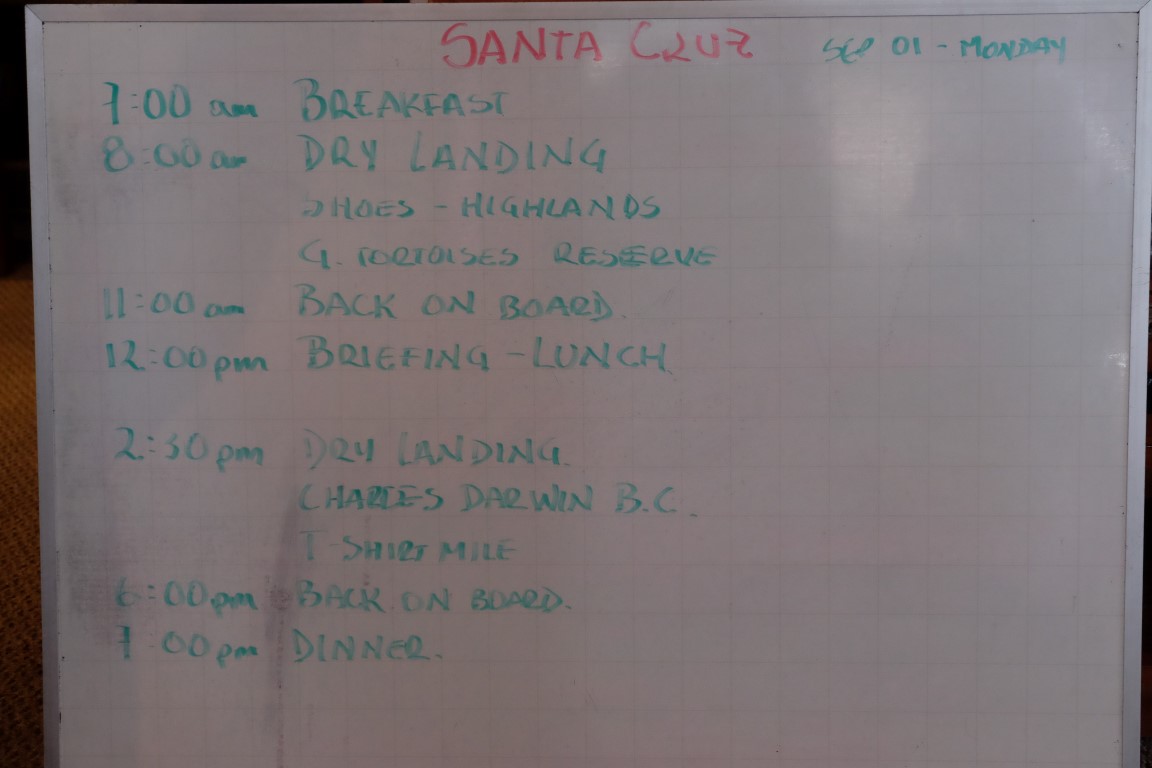 SANTA CRUZ SEP 01 - MONDAY
7:00 am BREAKFAST
8:00 am DRY LANDING
SHOES - HIGHLANDS
G. TORTOISES RESERVE
11:00 am BACK ON BOARD.
12:00 pm BRIEFING - LUNCH.
2:30 pm DRY LANDING.
CHARLES DARWIN B.C.
T-SHIRT MILE
6:00 pm BACK ON BOARD.
7:00 pm DINNER.